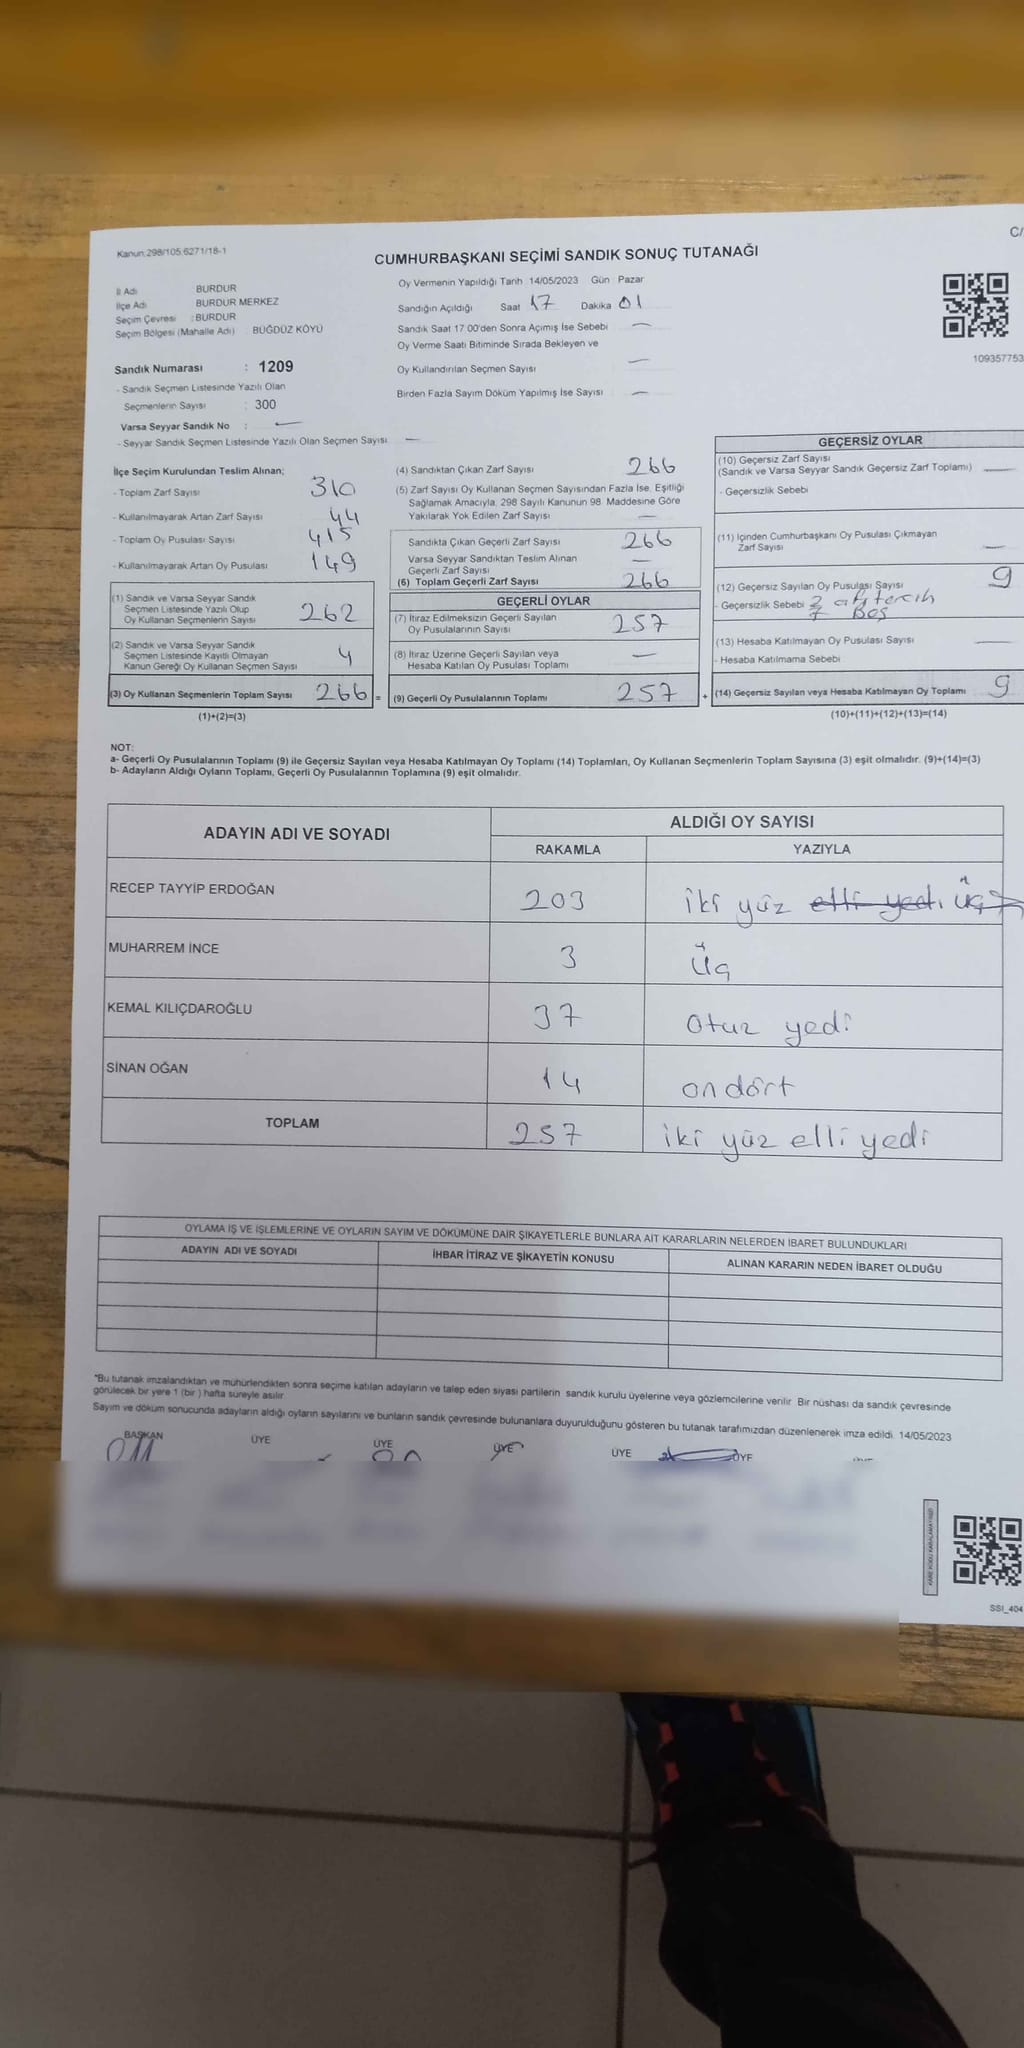 Kanun:298/105,6271/18-1
C/
CUMHURBAŞKANI SEÇİMİ SANDIK SONUÇ TUTANAĞI
İl Adı BURDUR
İlçe Adı BURDUR MERKEZ
Seçim Çevresi :BURDUR
Seçim Bölgesi (Mahalle Adı) BÜĞDÜZ KÖYÜ
Oy Vermenin Yapıldığı Tarih 14/05/2023 Gün Pazar
Sandığın Açıldığı Saat 17 Dakika 01
Sandık Saat 17 00'den Sonra Açımış İse Sebebi —
Oy Verme Saati Bitiminde Sırada Bekleyen ve
Oy Kullandırılan Seçmen Sayısı —
Birden Fazla Sayım Döküm Yapılmış İse Sayısı —
109357753
Sandık Numarası : 1209
- Sandık Seçmen Listesinde Yazılı Olan
Seçmenlerin Sayısı : 300
Varsa Seyyar Sandık No : —
- Seyyar Sandık Seçmen Listesinde Yazılı Olan Seçmen Sayısı —
İlçe Seçim Kurulundan Teslim Alınan;
- Toplam Zarf Sayısı 310
- Kullanılmayarak Artan Zarf Sayısı 44
- Toplam Oy Pusulası Sayısı 415
- Kullanılmayarak Artan Oy Pusulası 149
(1) Sandık ve Varsa Seyyar Sandık
Seçmen Listesinde Yazılı Olup
Oy Kullanan Seçmenlerin Sayısı 262
(2) Sandık ve Varsa Seyyar Sandık
Seçmen Listesinde Kayıtlı Olmayan
Kanun Gereği Oy Kullanan Seçmen Sayısı 4
(3) Oy Kullanan Seçmenlerin Toplam Sayısı 266 =
(1)+(2)=(3)
(4) Sandıktan Çıkan Zarf Sayısı 266
(5) Zarf Sayısı Oy Kullanan Seçmen Sayısından Fazla İse, Eşitliği
Sağlamak Amacıyla, 298 Sayılı Kanunun 98. Maddesine Göre
Yakılarak Yok Edilen Zarf Sayısı —
Sandıkta Çıkan Geçerli Zarf Sayısı 266
Varsa Seyyar Sandıktan Teslim Alınan
Geçerli Zarf Sayısı —
(6) Toplam Geçerli Zarf Sayısı 266
GEÇERLİ OYLAR
(7) İtiraz Edilmeksizin Geçerli Sayılan
Oy Pusulalarının Sayısı 257
(8) İtiraz Üzerine Geçerli Sayılan veya
Hesaba Katılan Oy Pusulası Toplamı —
(9) Geçerli Oy Pusulalarının Toplamı 257 +
GEÇERSİZ OYLAR
(10) Geçersiz Zarf Sayısı
(Sandık ve Varsa Seyyar Sandık Geçersiz Zarf Toplamı) —
- Geçersizlik Sebebi
(11) İçinden Cumhurbaşkanı Oy Pusulası Çıkmayan
Zarf Sayısı —
(12) Geçersiz Sayılan Oy Pusulası Sayısı 9
- Geçersizlik Sebebi
Boş
(13) Hesaba Katılmayan Oy Pusulası Sayısı —
- Hesaba Katılmama Sebebi
(14) Geçersiz Sayılan veya Hesaba Katılmayan Oy Toplamı 9
(10)+(11)+(12)+(13)=(14)
NOT:
a- Geçerli Oy Pusulalarının Toplamı (9) ile Geçersiz Sayılan veya Hesaba Katılmayan Oy Toplamı (14) Toplamları, Oy Kullanan Seçmenlerin Toplam Sayısına (3) eşit olmalıdır. (9)+(14)=(3)
b- Adayların Aldığı Oyların Toplamı, Geçerli Oy Pusulalarının Toplamına (9) eşit olmalıdır.
ADAYIN ADI VE SOYADI ALDIĞI OY SAYISI
RAKAMLA YAZIYLA
RECEP TAYYİP ERDOĞAN 203 iki yüz elli yedi üç
MUHARREM İNCE 3 üç
KEMAL KILIÇDAROĞLU 37 otuz yedi
SİNAN OĞAN 14 on dört
TOPLAM 257 iki yüz elli yedi
OYLAMA İŞ VE İŞLEMLERİNE VE OYLARIN SAYIM VE DÖKÜMÜNE DAİR ŞİKAYETLERLE BUNLARA AİT KARARLARIN NELERDEN İBARET BULUNDUKLARI
ADAYIN ADI VE SOYADI İHBAR İTİRAZ VE ŞİKAYETİN KONUSU ALINAN KARARIN NEDEN İBARET OLDUĞU
*Bu tutanak imzalandıktan ve mühürlendikten sonra seçime katılan adayların ve talep eden siyasi partilerin sandık kurulu üyelerine veya gözlemcilerine verilir. Bir nüshası da sandık çevresinde
görülecek bir yere 1 (bir ) hafta süreyle asılır
Sayım ve döküm sonucunda adayların aldığı oyların sayılarını ve bunların sandık çevresinde bulunanlara duyurulduğunu gösteren bu tutanak tarafımızdan düzenlenerek imza edildi. 14/05/2023
BAŞKAN ÜYE ÜYE ÜYE ÜYE ÜYE
SSI_404